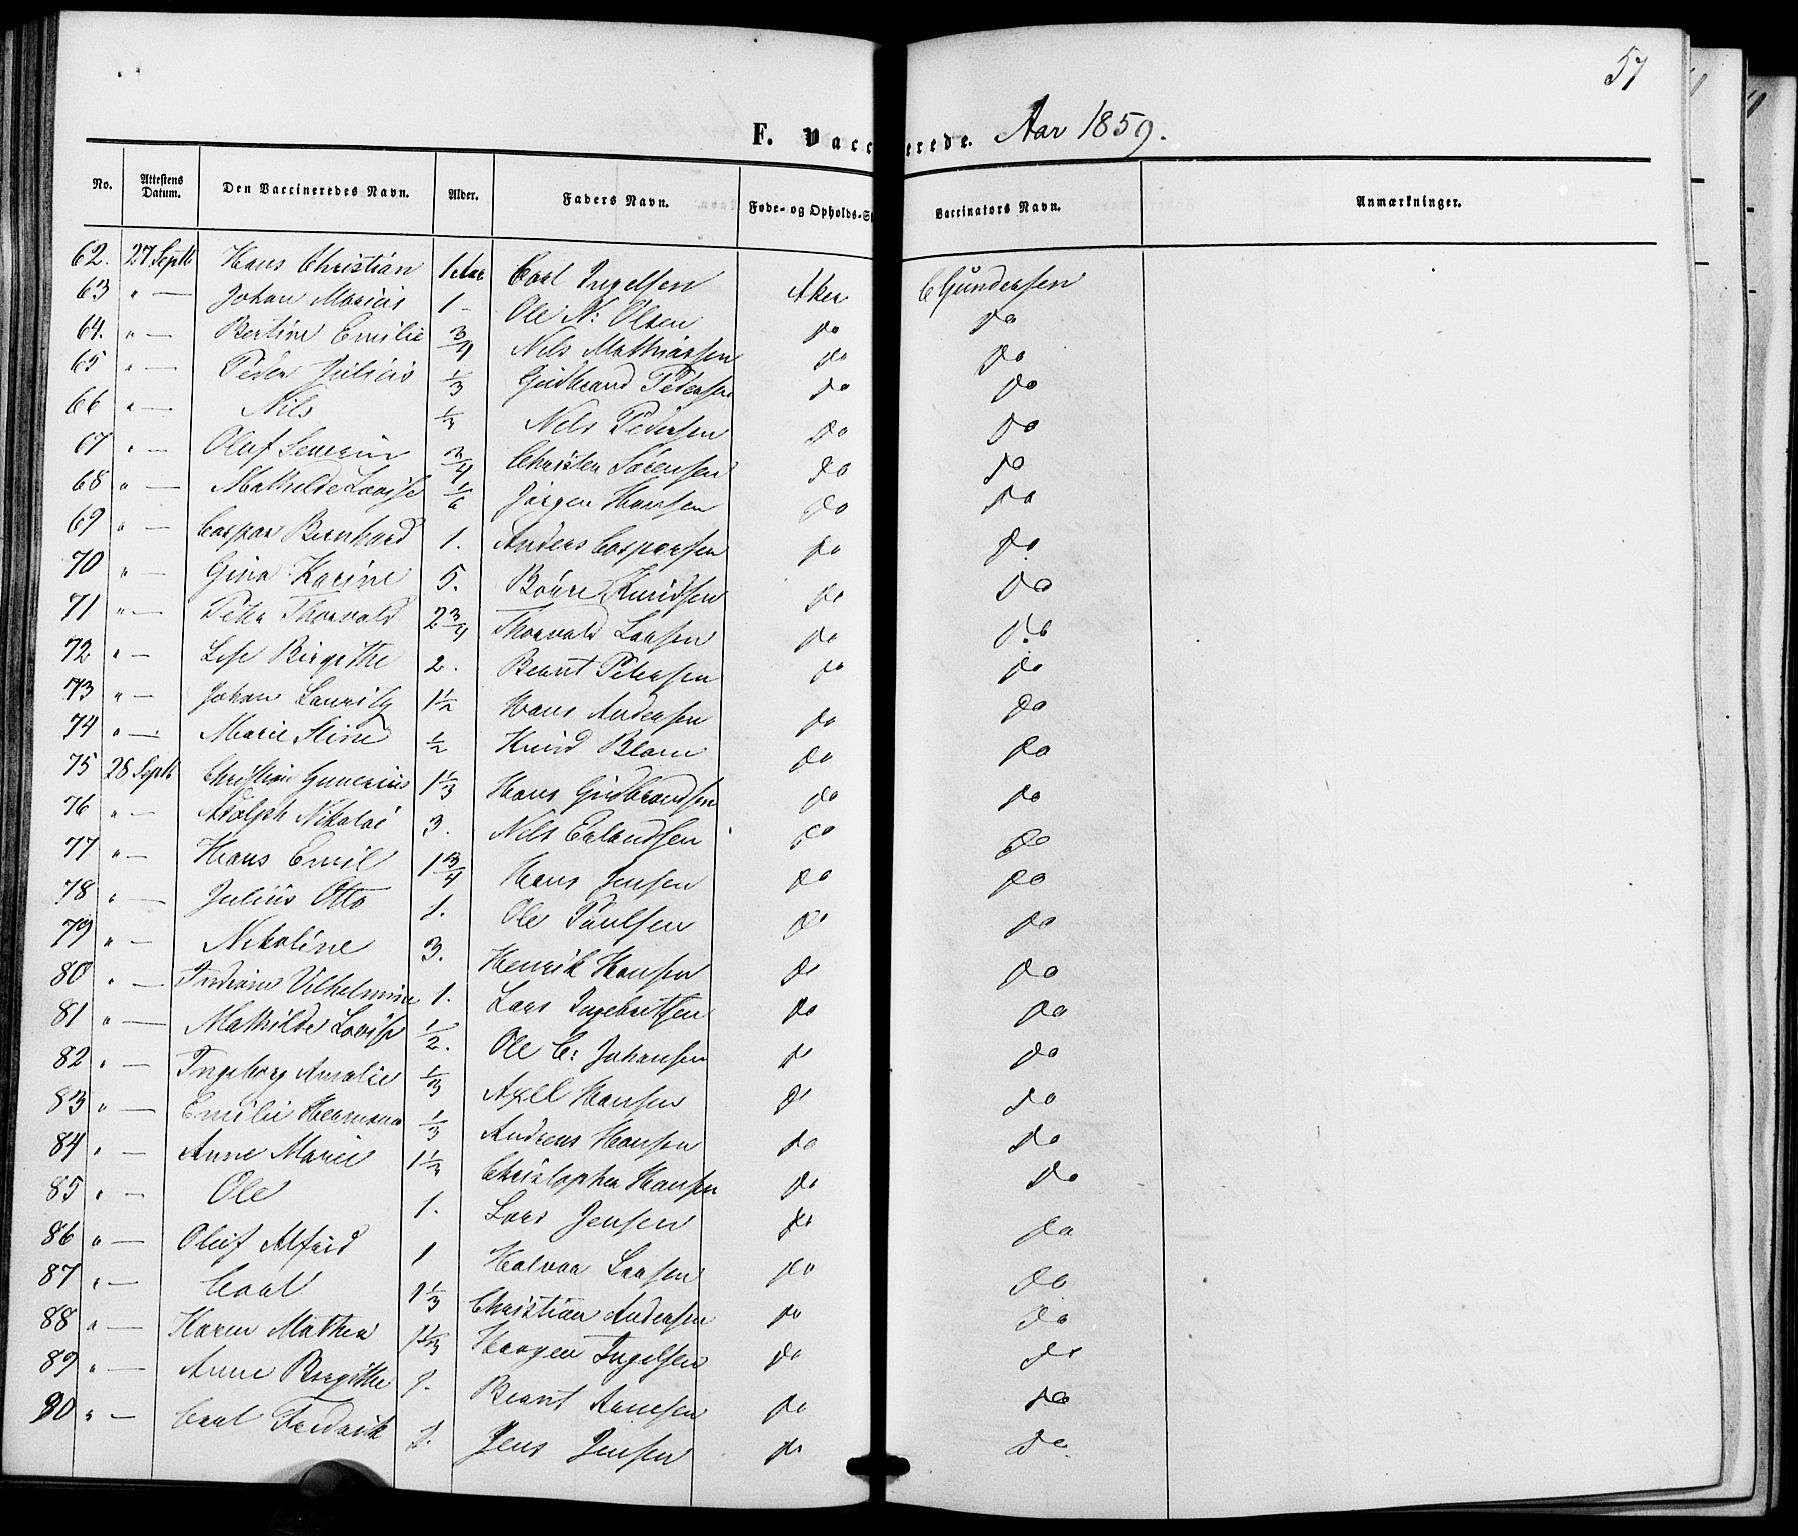 57
F. Vacc erede. Aar 1859.
No. Attestens Datum. Den Vaccineredes Navn. Alder. Faders Navn. Føde- og Opholds-St Vaccinators Navn. Anmærkninger.
62. 27 Septb Hans Christian 1 Aar Carl Ingelsen Aker C Gundersen
63 " — Johan Marius 1 - Ole N: Olsen do do
64. " — Bertine Emilie 3/4 Nils Mathiassen do do
65 " — Peder Julius 1/3 Gudbrand Petersen do do
66 " — Nils Nils Pedersen do do
67 " — Oluf Severin 3/4 Christen Sørensen do do
68 " — Mathilde Lovise 1/6 Jørgen Hansen do do
69 " — Caspar Bernhard 1. Anders Caspersen do do
70 " — Gina Karine 5. Knudsen do do
71 " — Peter Thorvald 2 3/4 Thorvald Larsen do do
72 " — Lise Birgithe 2. Bernt Petersen do do
73 " — Johan Lauritz 1 1/2 Hans Andersen do do
74 " — Marie Stine 1/2 Knud Blom do do
75 28 Septb Christian Gunerius 1 1/3 Hans Gudbrandsen do do
76 " — Adolph Nikolai 3. Nils Erlandsen do do
77 " — Hans Emil 1 3/4 Hans Jensen do do
78 " — Julius Otto 1. Ole Paulsen do do
79 " — Nikoline 3. Henrik Hansen do do
80 " — Vilhelmine 1. Lars Ingebretsen do do
81 " — Mathilde Lovise 1/2. Ole C: Johansen do do
82 " — Ingeborg Amalie 1/3 Axel Hansen do do
83 " — Emilie Hermana 1/3 Andreas Hansen do do
84 " — Anne Marie 1 1/2 Christopher Hansen do do
85 " — Ole 1. Lars Jensen do do
86 " — Oluf Alfred 1 Halvor Larsen do do
87 " — Carl 1 1/3 Christian Andersen do do
88 " — Karen Mathea 1 1/3 Haagen Ingelsen do do
89 " — Anne Birgithe 1. Bernt Arnesen do do
90 " — Carl Fredrik 1. Jens Jensen do do